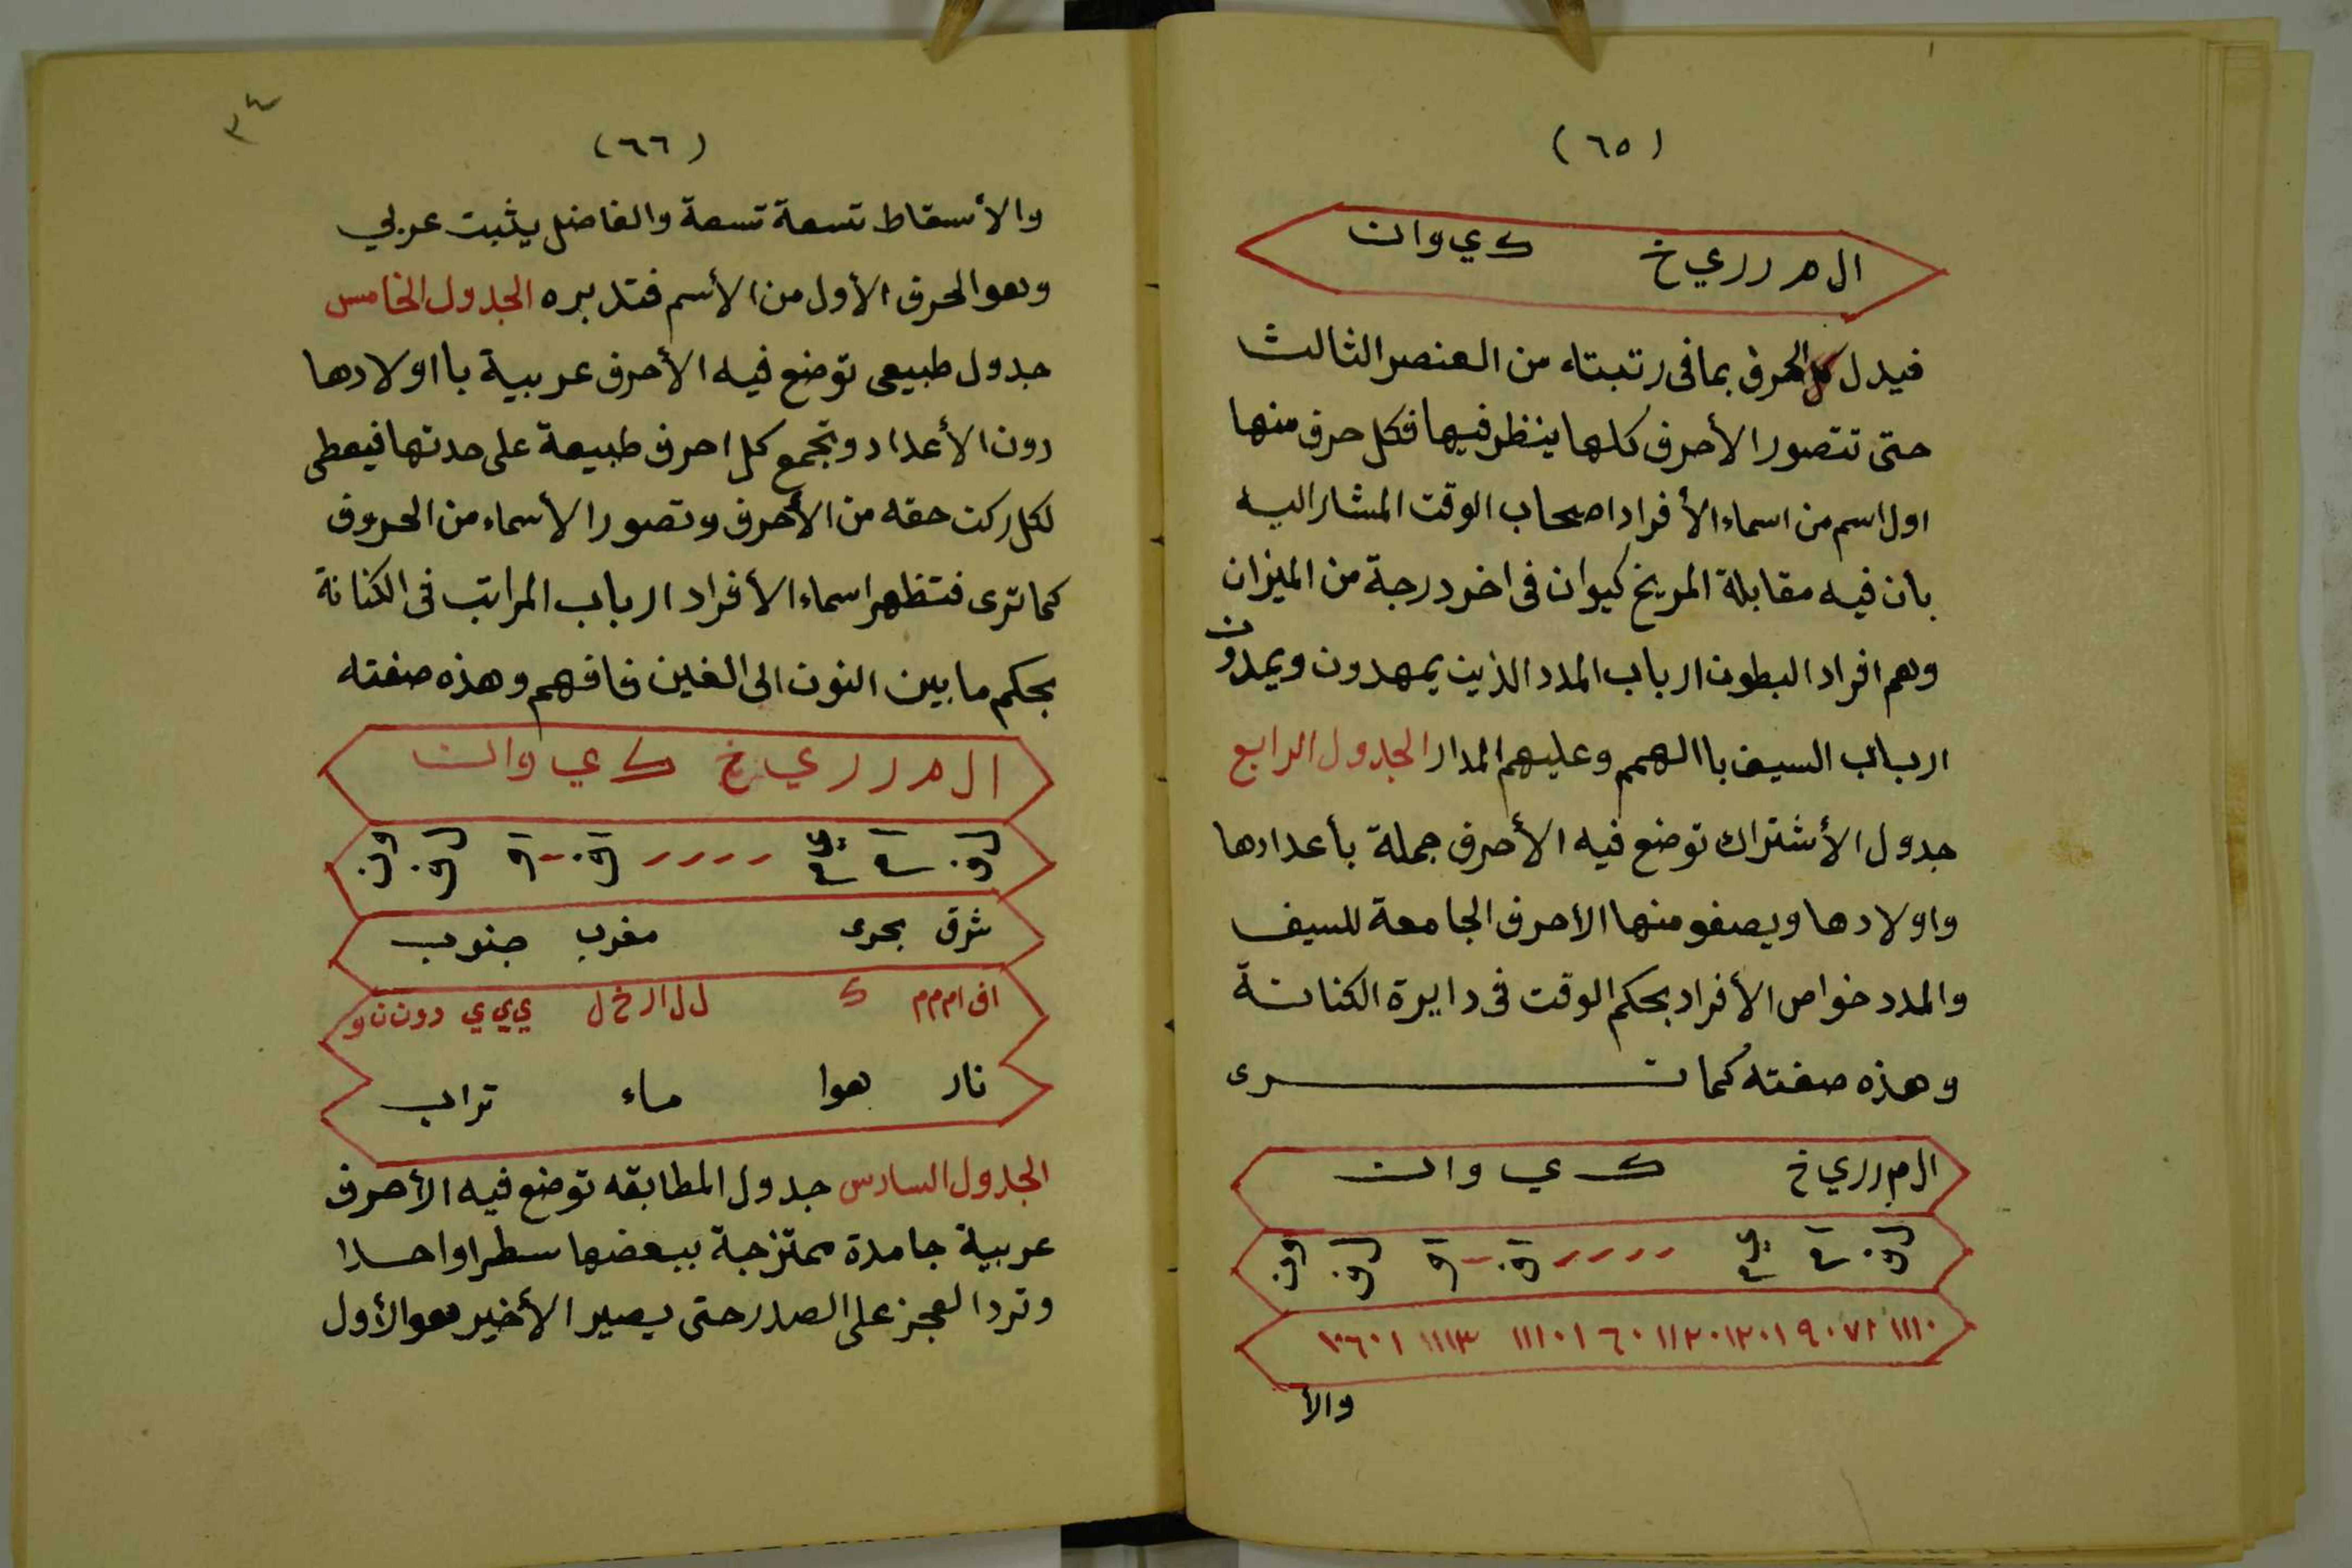 (٦٥)
ال م ر ر ي خ ك ي و ا ن
فيدل الحرف بما فى رتبته من العنصر الثالث
حتى تتصور الأحرف كلها ينظر فيها فكل حرف منها
اول اسم من اسماء الأفراد اصحاب الوقت المشار اليه
بان فيه مقابلة المريخ كيوان فى اخر درجة من الميزان
وهم افراد البطون ارباب المدد الذين يمهدون ويمدون
ارباب السيف باالهمم وعليهم المدار الجدول الرابع
جدول الأشتراك توضع فيه الأحرف جملة بأعدادها
واولادها ويصفو منها الاحرف الجامعة للسيف
والمدد خواص الأفراد بحكم الوقت فى دايرة الكنانة
وهذه صفته كما تـــرى
ال م ر ر ي خ ك ي و ا ن
والأ
٣٤
(٦٦)
والأسقاط تسعة تسعة والفاضل يثبت عربي
وهو الحرف الأول من الأسم فتدبره الجدول الخامس
جدول طبيعى توضع فيه الأحرف عربية بااولادها
دون الأعداد وتجمع كل احرف طبيعة على حدتها فيعطى
لكل ركن حقه من الأحرف وتصور الأسماء من الحروف
كما ترى فتظهر اسماء الأفراد ارباب المراتب فى الكنانة
بحكم ما بين النون الى الغين فافهم وهذه صفته
ال م ر ر ي خ ك ي و ا ن
شرق بحرى مغرب جنوب
نار هوا ماء تراب
الجدول السادس جدول المطابقه توضع فيه الأحرف
عربية جامدة ممتزجة ببعضها سطرا واحدا
وترد العجز على الصدر حتى يصير الأخير هو الأول